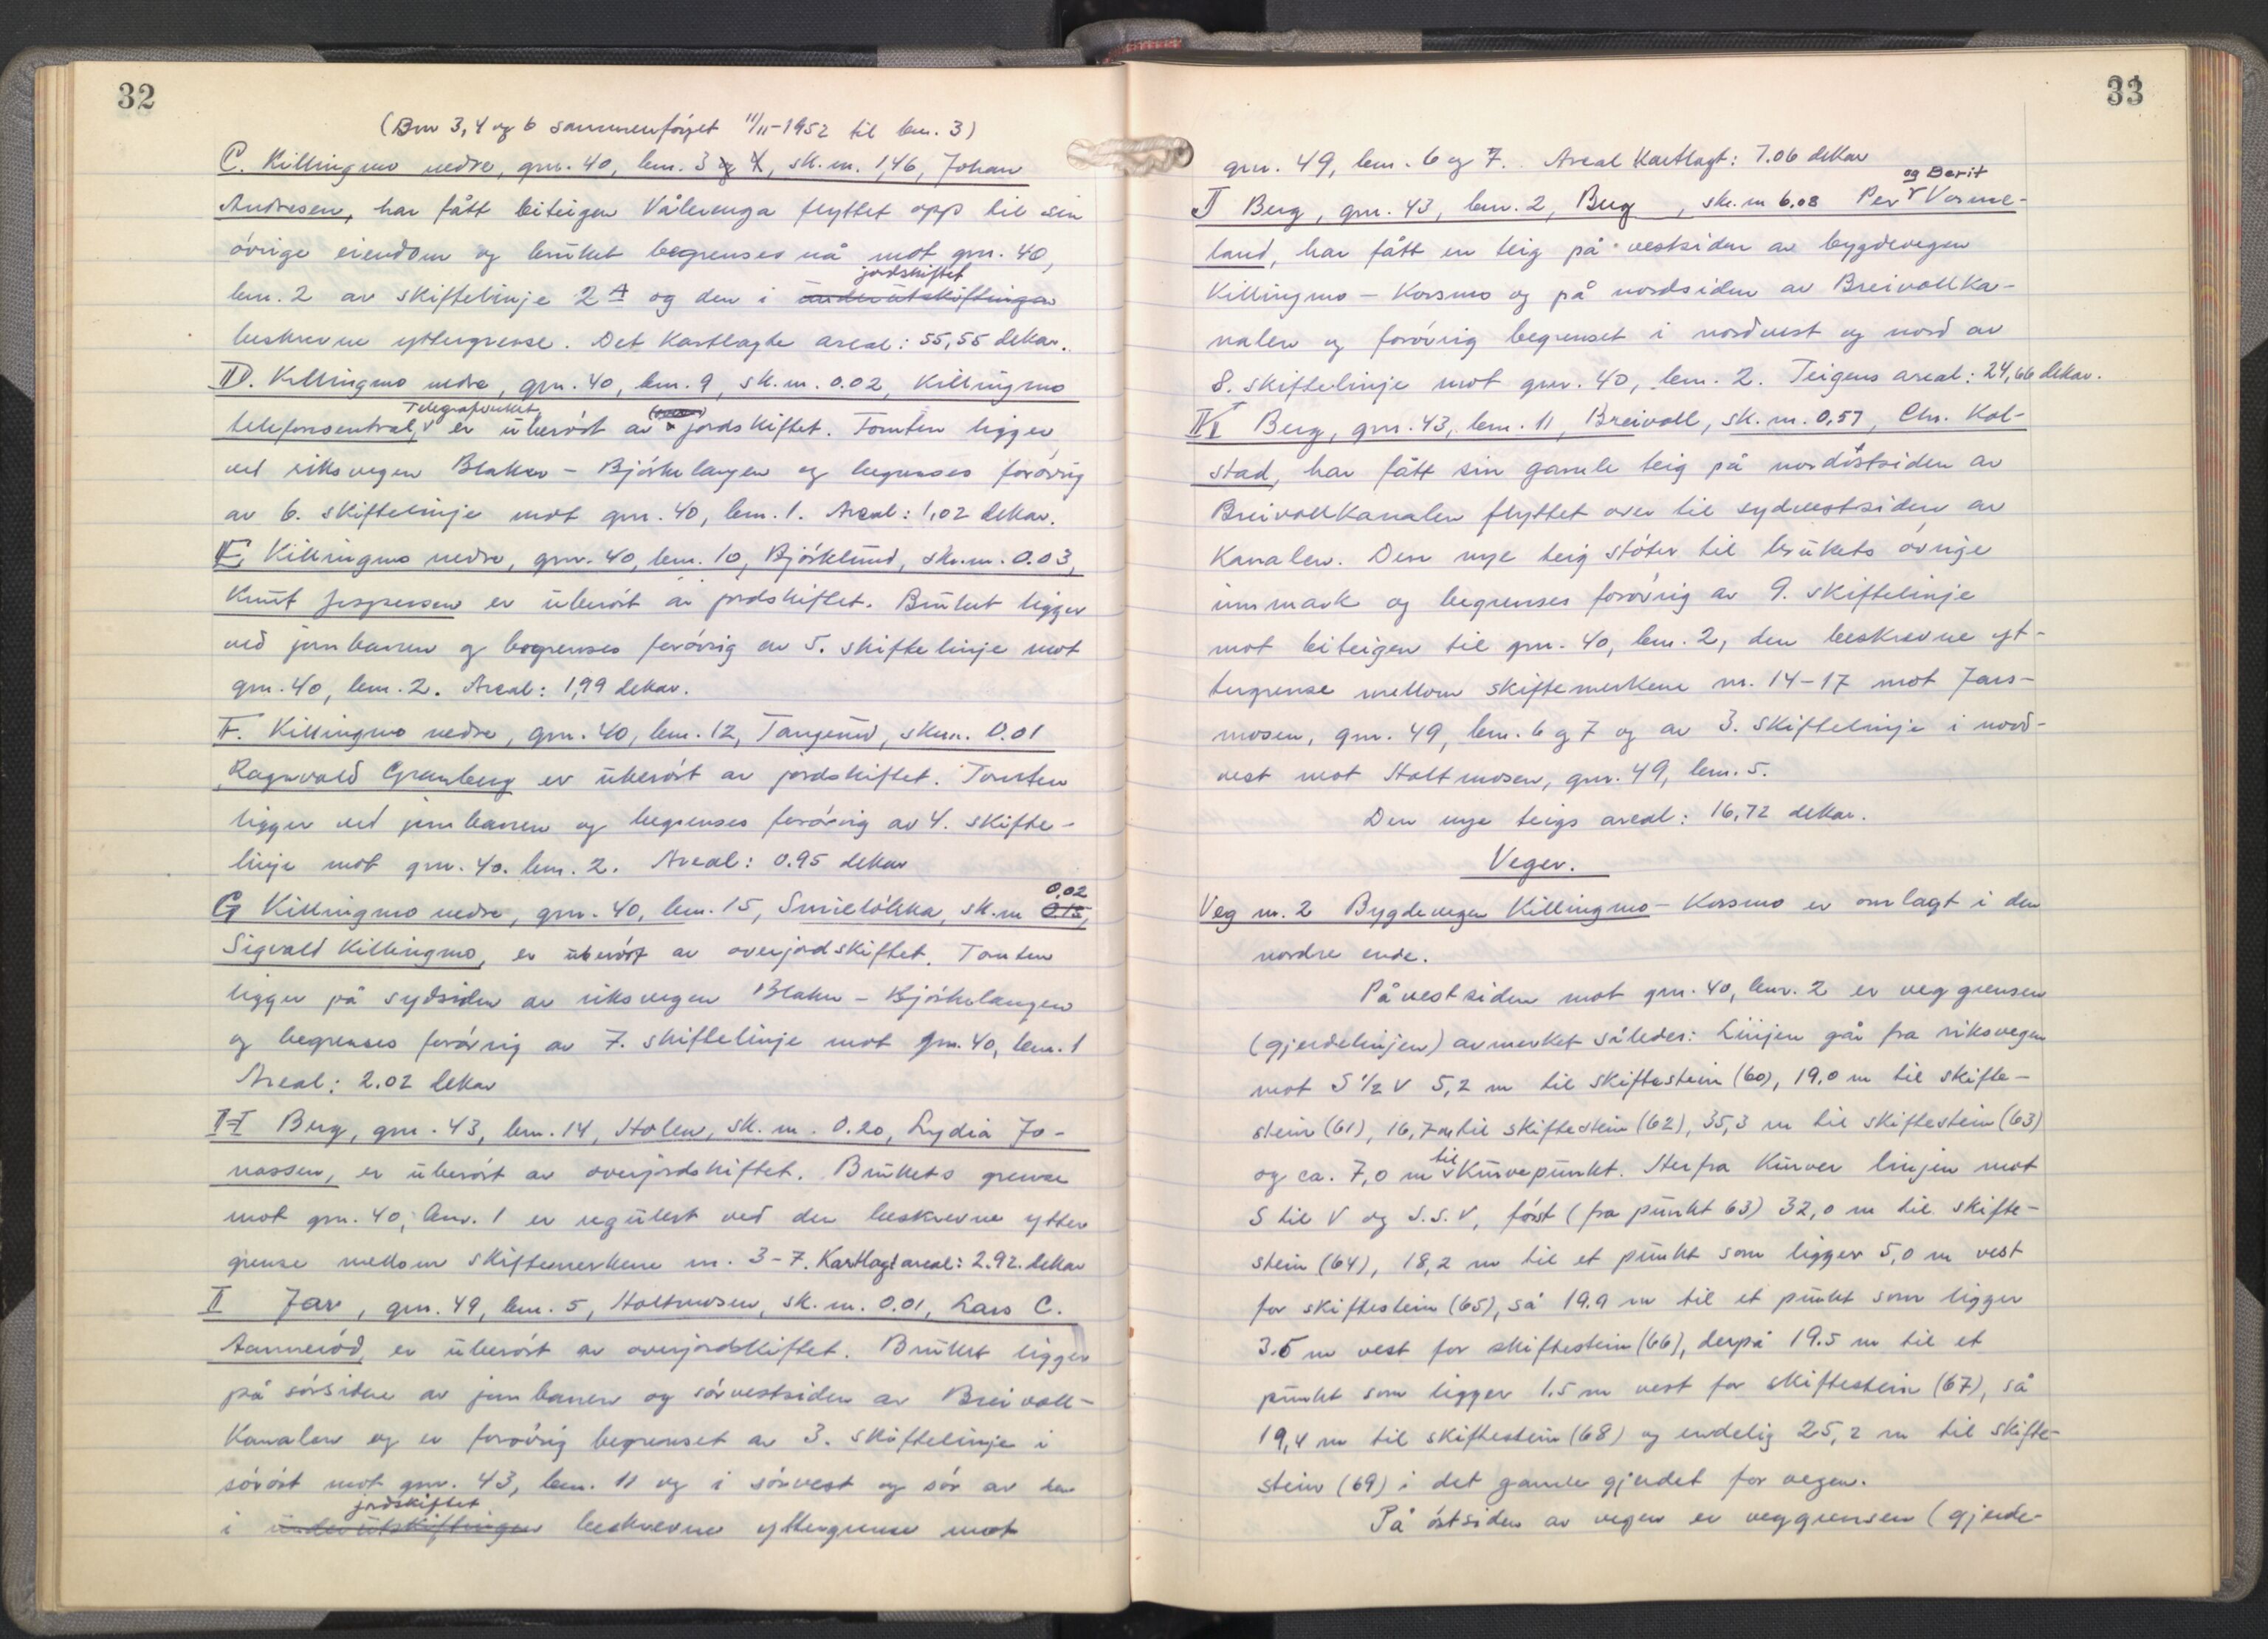 32
(Bnr 3, 4 og 6 sammenføyet 11/11-1952 til bnr. 3)
C. Killingmo nedre, gnr. 40, bnr. 3 og 4, sk.m. 1,46, Johan
Andresen, har fått biteigen Vålerenga flyttet opp til sin
øvrige eiendom og bruket begrenses nå mot gnr. 40,
jordskiftet
bnr. 2 av skiftelinje 2A og den i underutskiftingen
beskrevne yttergrense. Det kartlagte areal: 55,55 dekar.
D. Killingmo nedre, gnr. 40, bnr. 9, sk.m. 0.02, Killingmo
Telegrafverket
telefonsentral, er uberørt av jordskiftet. Tomten ligger
ved riksvegen Blaker - Bjørkelangen og begrenses forøvrig
av 6. skiftelinje mot gnr. 40, bnr. 1. Areal: 1,02 dekar.
E. Killingmo nedre, gnr. 40, bnr. 10, Bjørklund, sk.m. 0.03,
Knut Jespersen er uberørt av jordskiftet. Bruket ligger
ved jernbanen og begrenses forøvrig av 5. skiftelinje mot
gnr. 40, bnr. 2. Areal: 1,99 dekar.
F. Killingmo nedre, gnr. 40, bnr. 12, Tangerud, skm. 0.01
Ragnvald Granberg er uberørt av jordskiftet. Tomten
ligger ved jernbanen og begrenses forøvrig av 4. skifte-
linje mot gnr. 40. bnr. 2. Areal: 0.95 dekar
0,02
G Killingmo nedre, gnr. 40, bnr. 15, Smieløkka, sk.m 0.15,
Sigvald Killingmo, er uberørt av overjordskiftet. Tomten
ligger på sydsiden av riksvegen Blaker - Bjørkelangen
og begrenses forøvrig av 7. skiftelinje mot gnr. 40, bnr. 1
Areal: 2.02 dekar
H Berg, gnr. 43, bnr. 14, Holen, sk. m. 0.20, Lydia Jo-
nassen, er uberørt av overjordskiftet. Brukets grense
mot gnr. 40, bnr. 1 er regulert ved den beskrevne ytter
grense mellom skiftemerkene nr. 3-7. Kartlagt areal: 2.92. dekar
I Jar, gnr. 49, bnr. 5, Holtmosen, sk. m. 0.01, Lars C.
Aannerød, er uberørt av overjordskiftet. Bruket ligger
på sørsiden av jernbanen og sørvestsiden av Breivoll-
kanalen og er forøvrig begrenset av 3. skiftelinje i
sørøst mot gnr. 43, bnr. 11 og i sørvest og sør av den
jordskiftet
i underutskiftingen beskrevne yttergrense mot
33
gnr. 49, bnr. 6 og 7. Areal kartlagt: 7.06 dekar
og Berit
J Berg, gnr. 43, bnr. 2, Berg, sk. m 6.08 Per Vorme-
land, har fått en teig på vestsiden av bygdevegen
Killingmo - Korsmo og på nordsiden av Breivollka-
nalen og forøvrig begrenset i nordvest og nord av
8. skiftelinje mot gnr. 40, bnr. 2. Teigens areal: 24,66 dekar.
K Berg, gnr. 43, bnr. 11, Breivoll, sk. m. 0,57, Chr. Kol-
stad, har fått sin gamle teig på nordøstsiden av
Breivollkanalen flyttet over til sydvestsiden av
kanalen. Den nye teig støter til brukets øvrige
innmark og begrenses forøvrig av 9. skiftelinje
mot biteigen til gnr. 40, bnr. 2, den beskrevne yt-
tergrense mellom skiftemerkene nr. 14-17 mot Jars-
mosen, gnr. 49, bnr. 6 og 7 og av 3. skiftelinje i nord-
vest mot Holtmosen, gnr. 49, bnr. 5.
Den nye teigs areal: 16,72 dekar.
Veger.
Veg nr. 2 Bygdevegen Killingmo - Korsmo er omlagt i den
nordre ende.
På vestsiden mot gnr. 40, bnr. 2 er veggrensen
(gjerdelinjen) avmerket således: Linjen går fra riksvegen
mot S 1/2 V 5,2 m til skiftestein (60), 19,0 m til skifte-
stein (61), 16,7 m til skiftestein (62), 35,3 m til skiftestein (63)
til
og ca. 7,0 m kurvepunkt. Herfra kurver linjen mot
S til V og S.S.V, først (fra punkt 63) 32,0 m til skifte-
stein (64), 18,2 m til et punkt som ligger 5,0 m vest
for skiftestein (65), så 19.9 m til et punkt som ligger
3.5 m vest for skiftestein (66), derpå 19.5 m til et
punkt som ligger 1.5 m vest for skiftestein (67), så
19,4 m til skiftestein (68) og endelig 25,2 m til skifte-
stein (69) i det gamle gjerdet for vegen.
På østsiden av vegen er veggrensen (gjerde-